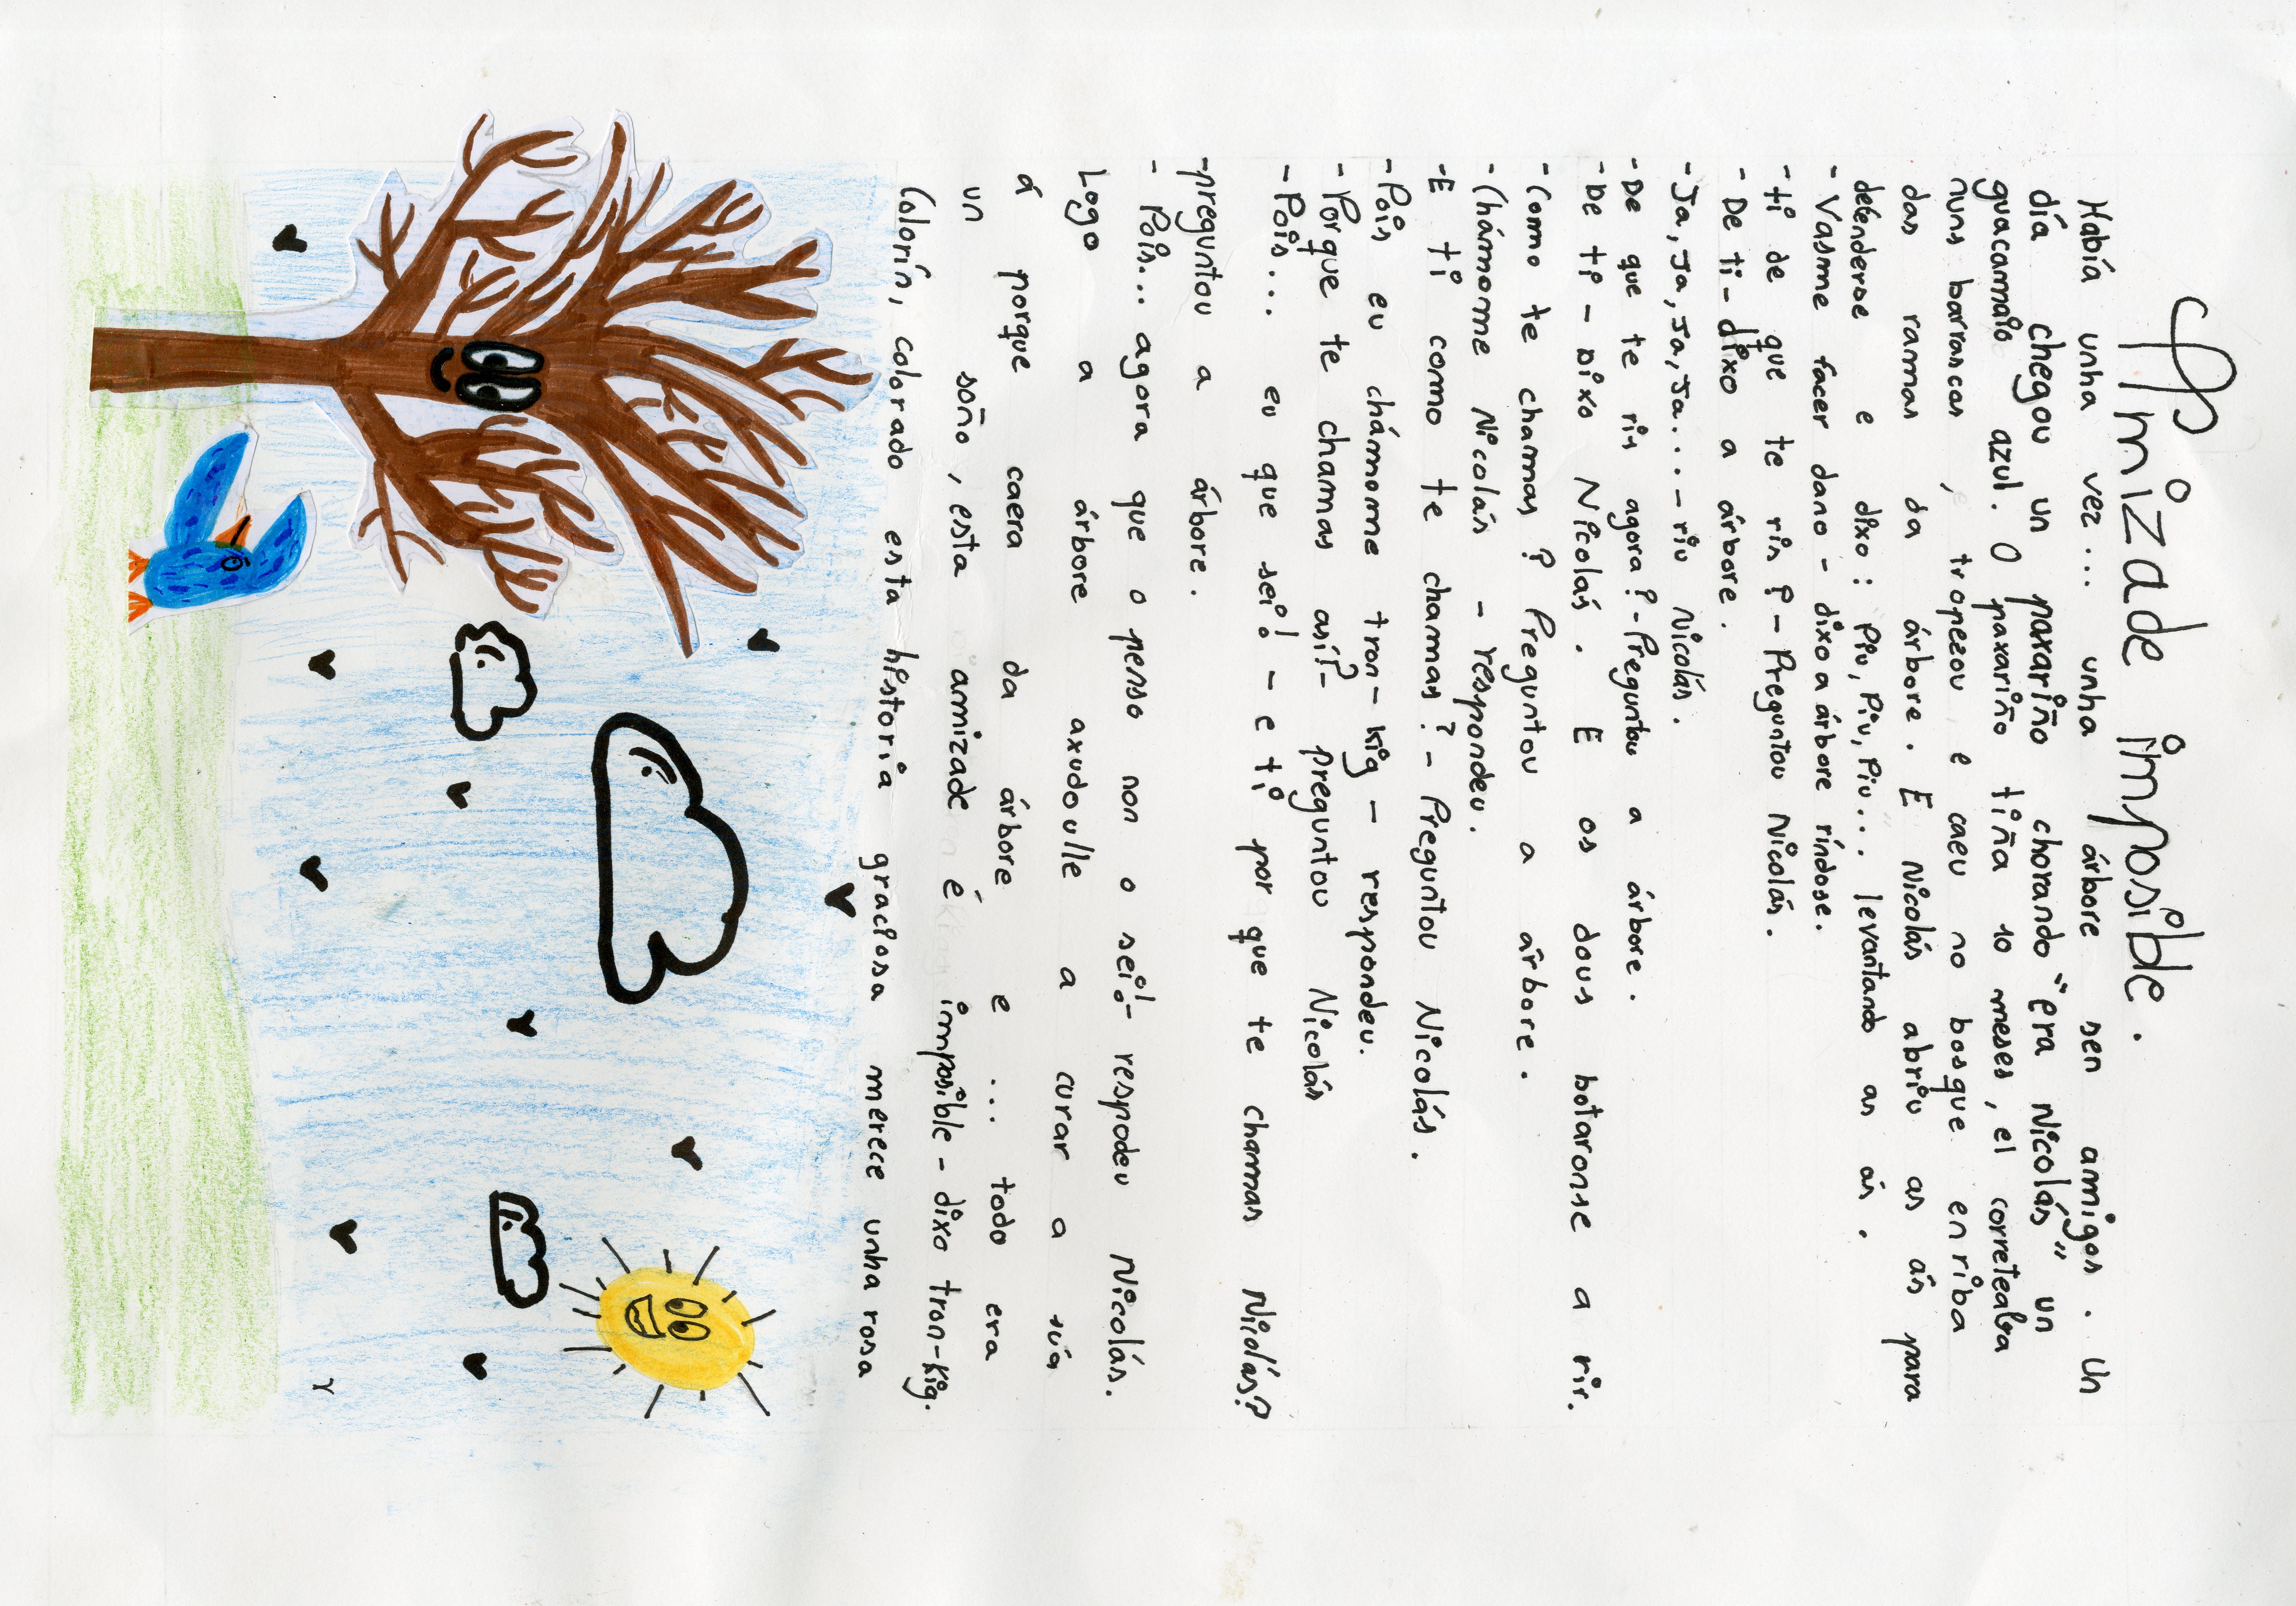 Amizade imposible.
Había unha vez... unha árbore sen amigos. Un
día chegou un paxariño chorando "era Nicolás" un
guacamaio azul. O paxariño tiña 10 meses, el correteaba
nuns barrascos, tropezou e caeu no bosque enriba
das ramas da árbore. E Nicolás abriu as ás para
defenderse e dixo: Piu, Piu, Piu... levantando as ás.
- Vasme facer dano - dixo a árbore ríndose.
- ti de que te ris? - Preguntou Nicolás.
- De ti - dixo a árbore.
- Ja, Ja, Ja, Ja, Ja... - riu Nicolás.
- De que te ris agora? - Preguntou a árbore.
- De ti - Dixo Nicolás. E os dous botaronse a rir.
- Como te chamas? Preguntou a árbore.
- Chámome Nicolás - respondeu.
- E ti como te chamas? - Preguntou Nicolás.
- Pois eu chámome tron-kig - respondeu.
- Porque te chamas así? - preguntou Nicolás
- Pois... eu que sei! - e ti por que te chamas Nicolás?
- preguntou a árbore.
- Pois... agora que o penso non o sei! - respodeu Nicolás.
Logo a árbore axudoulle a curar a súa
á porque caera da árbore e ... todo era
un soño, esta amizade é imposible - dixo tron-kig.
Colorín, colorado esta historia graciosa merece unha rosa